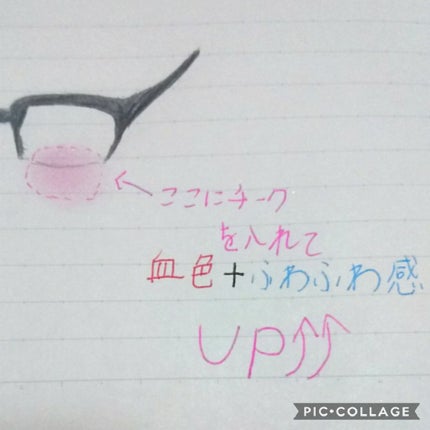 ここにチーク
を入れて
血色+ふわふわ感
UP⇈
PIC•COLLAGE